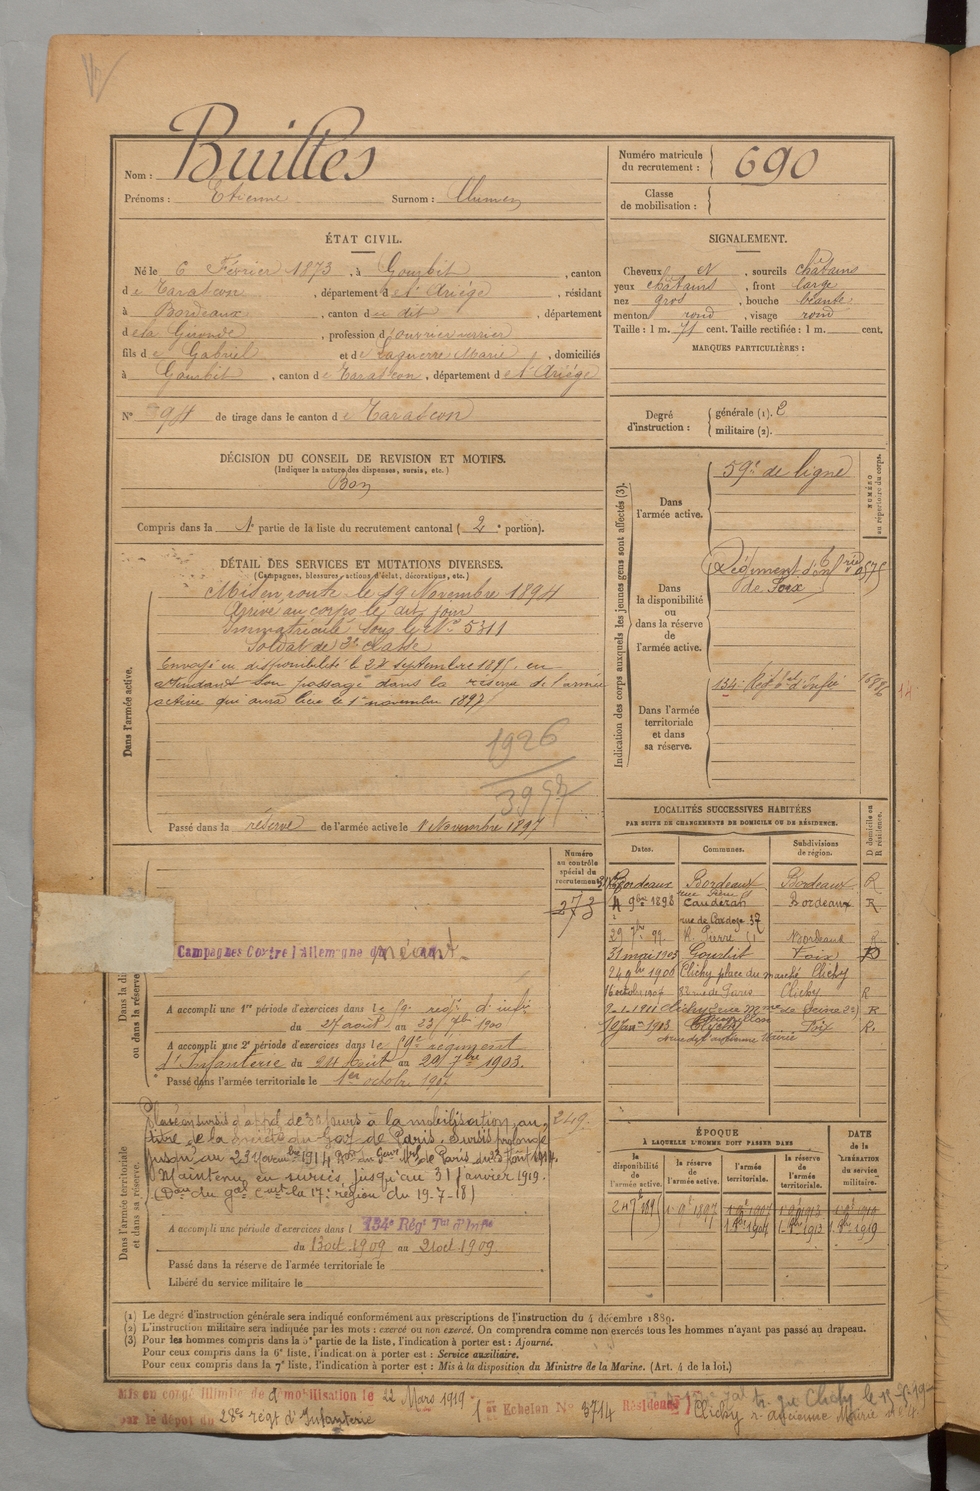 Nom : Builles
Prénoms : Etienne Surnom :
Numéro matricule du recrutement : 690
Classe de mobilisation :
ÉTAT CIVIL.
Né le 6 Février 1873, à Gourbit, canton
de Tarascon, département de l'Ariége, résidant
à Bordeaux, canton du dit, département
de la Gironde, profession d'ouvrier verrier
fils de Gabriel et de Laguerre Marie, domiciliés
à Gourbit, canton de Tarascon, département de l'Ariége
N° de tirage dans le canton de Tarascon
DÉCISION DU CONSEIL DE REVISION ET MOTIFS.
(Indiquer la nature des dispenses, sursis, etc.)
Bon
Compris dans la partie de la liste du recrutement cantonal (2e portion).
SIGNALEMENT.
Cheveux N, sourcils châtains
yeux châtains, front large
nez gros, bouche béante
menton rond, visage rond
Taille : 1 m. cent. Taille rectifiée : 1 m. cent.
MARQUES PARTICULIÈRES :
Degré d'instruction : générale (1). 2
militaire (2).
DÉTAIL DES SERVICES ET MUTATIONS DIVERSES.
(Campagnes, blessures, actions d'éclat, décorations, etc.)
Dans l'armée active.
Mis en route le 19 Novembre 1894
Arrivé au corps le dit jour
Immatriculé sous le N° 5311
Soldat de 2e classe
Envoyé en disponibilité le 24 septembre 1895, en
attendant son passage dans la réserve de l'armée
active qui aura lieu le 1er novembre 1897
1926
Passé dans la réserve de l'armée active le 1 Novembre 1897
Indication des corps auxquels les jeunes gens sont affectés (3).
NUMÉRO au répertoire du corps.
Dans l'armée active.
59e de ligne
Dans la disponibilité ou dans la réserve de l'armée active.
Régiment d'inf
de Foix
Dans l'armée territoriale et dans sa réserve.
134e Régt tal d'Infie
LOCALITÉS SUCCESSIVES HABITÉES
PAR SUITE DE CHANGEMENTS DE DOMICILE OU DE RÉSIDENCE.
Dates. Communes. Subdivisions de région. D domicile ou R résidence.
Bordeaux Bordeaux Bordeaux R
4 9bre 1898 Caudéran Bordeaux R
29 7bre 99 Bordeaux R
31 mai 1903 Gourbit Foix D
24 9bre 1906 Clichy place du marché Clichy
16 octobre 1907 82 rue de Paris Clichy R
10 Janv 1913 Clichy Foix R.
Numéro au contrôle spécial du recrutement
273
Campagnes Contre l'Allemagne du néant.
A accompli une 1re période d'exercices dans le 59e régt d'infie
du 27 août au 23 7bre 1900
A accompli une 2e période d'exercices dans le 59e régiment
d'Infanterie du 24 Août au 20 7bre 1903.
Passé dans l'armée territoriale le 1er octobre 1907
Dans l'armée territoriale et dans sa réserve.
Placé en sursis d'appel de 30 jours à la mobilisation au 249.
titre de la société du Gaz de Paris. Sursis prolongé
jusqu'au 23 Novembre 1914
Maintenu en sursis jusqu'au 31 janvier 1919.
(Don du gal Cdt la 17e région du 19-7-18)
A accompli une période d'exercices dans l 134e Régt Tal d'Infie
du 13 oct. 1909 au 21 oct. 1909.
Passé dans la réserve de l'armée territoriale le
Libéré du service militaire le
ÉPOQUE
À LAQUELLE L'HOMME DOIT PASSER DANS
la disponibilité de l'armée active. la réserve de l'armée active. l'armée territoriale. la réserve de l'armée territoriale. DATE de la LIBÉRATION du service militaire.
24 7b 1895 1 9b 1897
(1) Le degré d'instruction générale sera indiqué conformément aux prescriptions de l'instruction du 4 décembre 1889.
(2) L'instruction militaire sera indiquée par les mots : exercé ou non exercé. On comprendra comme non exercés tous les hommes n'ayant pas passé au drapeau.
(3) Pour les hommes compris dans la 5e partie de la liste, l'indication à porter est : Ajourné.
Pour ceux compris dans la 6e liste, l'indication à porter est : Service auxiliaire.
Pour ceux compris dans la 7e liste, l'indication à porter est : Mis à la disposition du Ministre de la Marine. (Art. 4 de la loi.)
Mis en congé illimité de démobilisation le 22 Mars 1919
par le dépôt du 28e régt d'Infanterie
1er Echelon N° 3714 Résidence Clichy r. ancienne Mairie